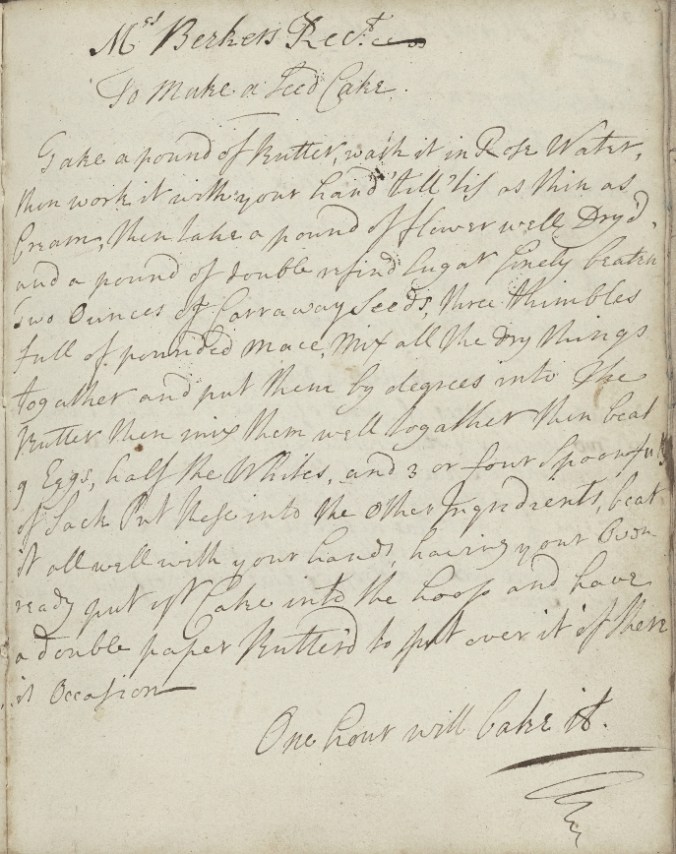 Mrs Berkers Rect
To Make a Seed Cake.
Take a pound of Butter, wash it in Rose Water,
then work it with your hand 'till 'tis as thin as
Cream, then take a pound of flower well Dry'd,
and a pound of double refind Sugar finely beaten
two Ounces of Carraway Seeds, three thimbles
full of pounded Mace, Mix all the Dry things
togather and put them by degrees into the
Butter then mix them well togather then beat
9 Eggs, half the Whites, and 3 or four Spoonfulls
of Sack Put these into the Other Ingredients, beat
it all well with your hands, having your Oven
ready put yr Cake into the hoop and have
a double paper Butter'd to put over it if there
is Occasion
One hour will bake it.